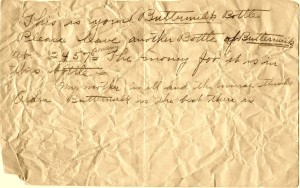 This is your Buttermilk Bottle
Please leave another Bottle of Buttermilk
The money for it is in
this bottle
My mother is ill and the nurse thinks
Buttermilk is the best there is